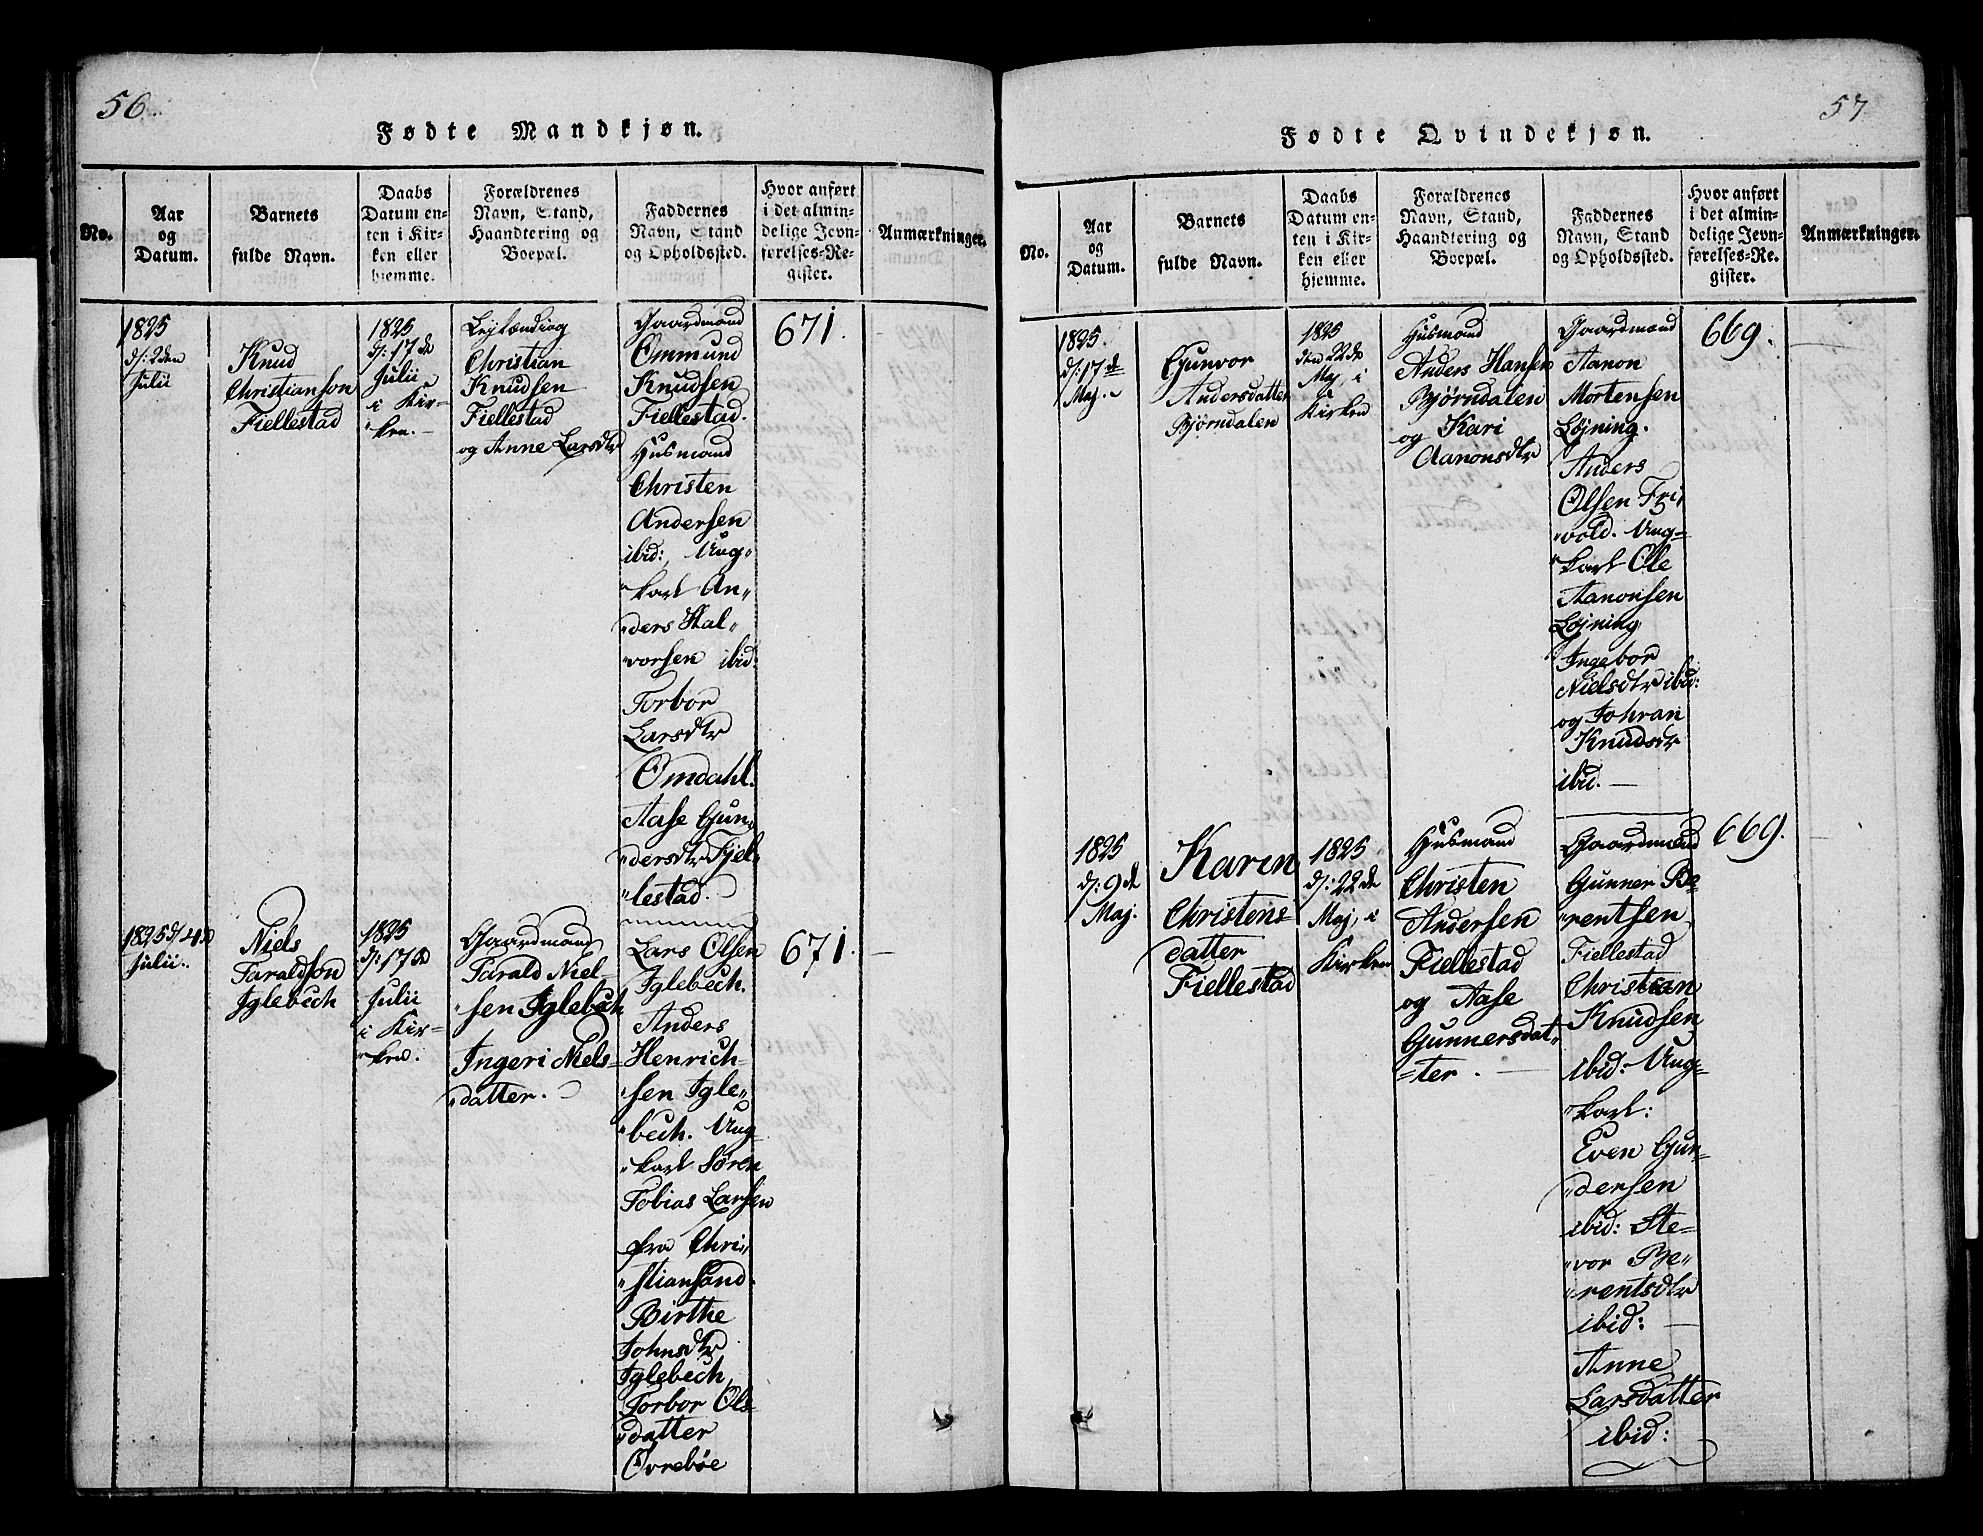 56.
Fødte Mandkjøn.
No.
Aar
og
Datum.
Barnets
fulde Navn.
Daabs
Datum en-
ten i Kir-
ken eller
hjemme.
Forældrenes
Navn, Stand,
Haandtering og
Boepæl.
Faddernes
Navn, Stand
og Opholdssted.
Hvor anført
i det almin-
delige Jevn-
førelses-Re-
gister.
Anmærkninger.
1825
d: 2den
Julii
Knud
Christianson
Fiellestad
1825
d: 17de
Julii
i Kir-
"ken.
Leylænding
Christian
Knudsen
Fiellestad
og Anne Larsdtr
Gaardmand
Ommund
Knudsen
Fiellestad.
Husmand
Christen
Andersen
ibid:, Ung"
"karl An"
"ders Hal"
"vorsen ibid:
Torbor
Larsdtr
Omdahl.
Aase Gun"
"dersdtr Fjel"
"lestad.
671.
1825 d: 4de
Julii.
Niels
Taraldson
Iglebech
1825
d: 17de
Julii
i Kir-
"ken.
Gaardmand
Tarald Niel-
"sen Iglebech
Ingeri Niels-
"datter.
Lars Olsen
Iglebech.
Anders
Henrich-
"sen Igle"
"bech. Ung-
"karl Søren
Tobias Larsen
fra Chri"
"stiansand.
Birthe
Johnsdtr
Iglebech,
Torbor Ols-
"datter
Øvrebøe
671.
57
Fødte Qvindekjøn.
No.
Aar
og
Datum.
Barnets
fulde Navn.
Daabs
Datum en-
ten i Kir-
ken eller
hjemme.
Forældrenes
Navn, Stand,
Haandtering og
Boepæl.
Faddernes
Navn, Stand
og Opholdssted.
Hvor anført
i det almin-
delige Jevn-
førelses-Re-
gister.
Anmærkninger.
1825.
d: 17de
Maj.
Gunvor
Andersdatter
Bjørndalen
1825
den 22de
Maj, i
Kirken
Husmand
Anders Hansen
Bjørndalen
og Kari
Aanonsdtr
Gaardmand
Aanon
Mortensen
Løjning.
Anders
Olsen Fri"
"vold. Ung-
"karl Ole
Aanonsen
Løjning
Ingebor
Nielsdtr ibid:
og Johran
Knudsdtr
ibid.
669.
1825
d: 9de
Maj.
Karen
Christens-
datter
Fiellestad
1825
d: 22de
Maj, i
Kirken
Husmand
Christen
Andersen
Fiellestad
og Aase
Gunnersdat-
-ter.
Gaardmand
Gunner Be-
"rentsen
Fiellestad
Christian
Knudsen
ibid: Ung-
"karl:
Even Gun-
"dersen
ibid: Ste-
"vor Be"
"rentsdtr
ibid:
Anne
Larsdatter
ibid:
669.